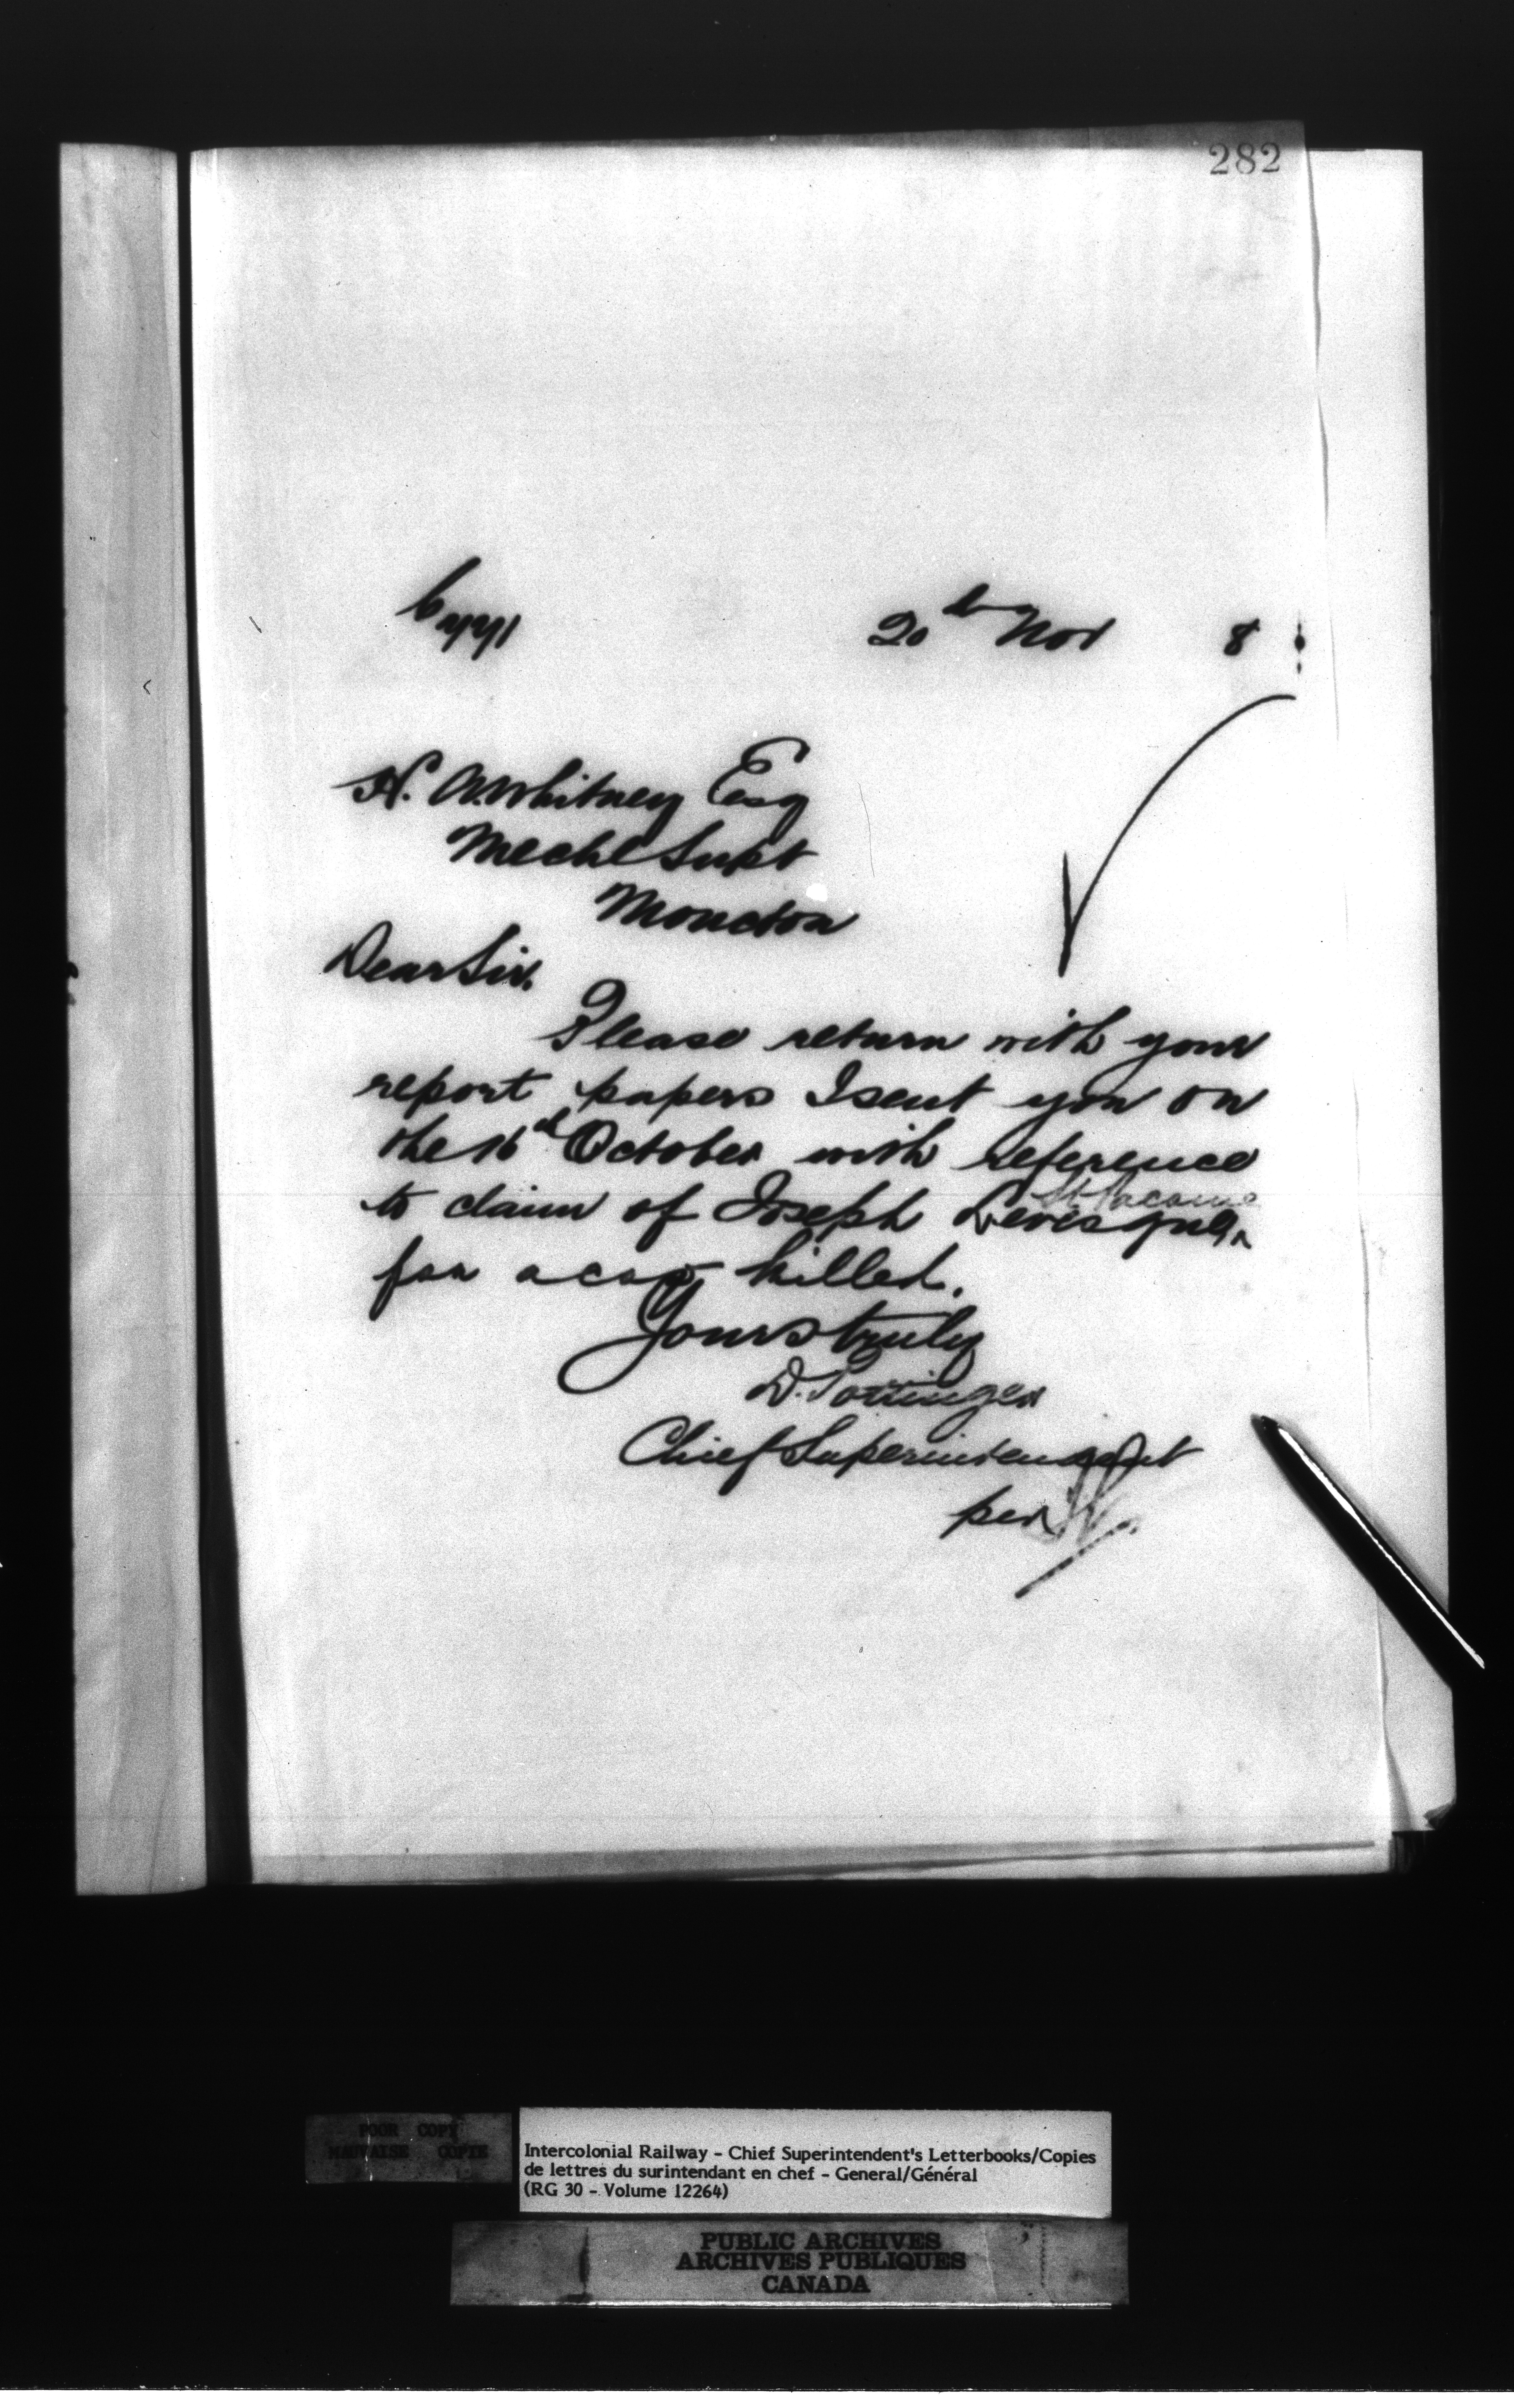 282
20th Nov 8
H. A. Whitney Esq
Mechl Supt
Moncton
Dear Sir.
Please return with your
report papers I sent you on
the 16th October with reference
St Pacome
to claim of Joseph Levesque ^
for a cow killed.
Yours truly
D. Pottinger
Chief Superintendent
per
POOR COPY
MAUVAISE COPIE
Intercolonial Railway - Chief Superintendent's Letterbooks/Copies
de lettres du surintendant en chef - General/Général
(RG 30 - Volume 12264)
PUBLIC ARCHIVES
ARCHIVES PUBLIQUES
CANADA